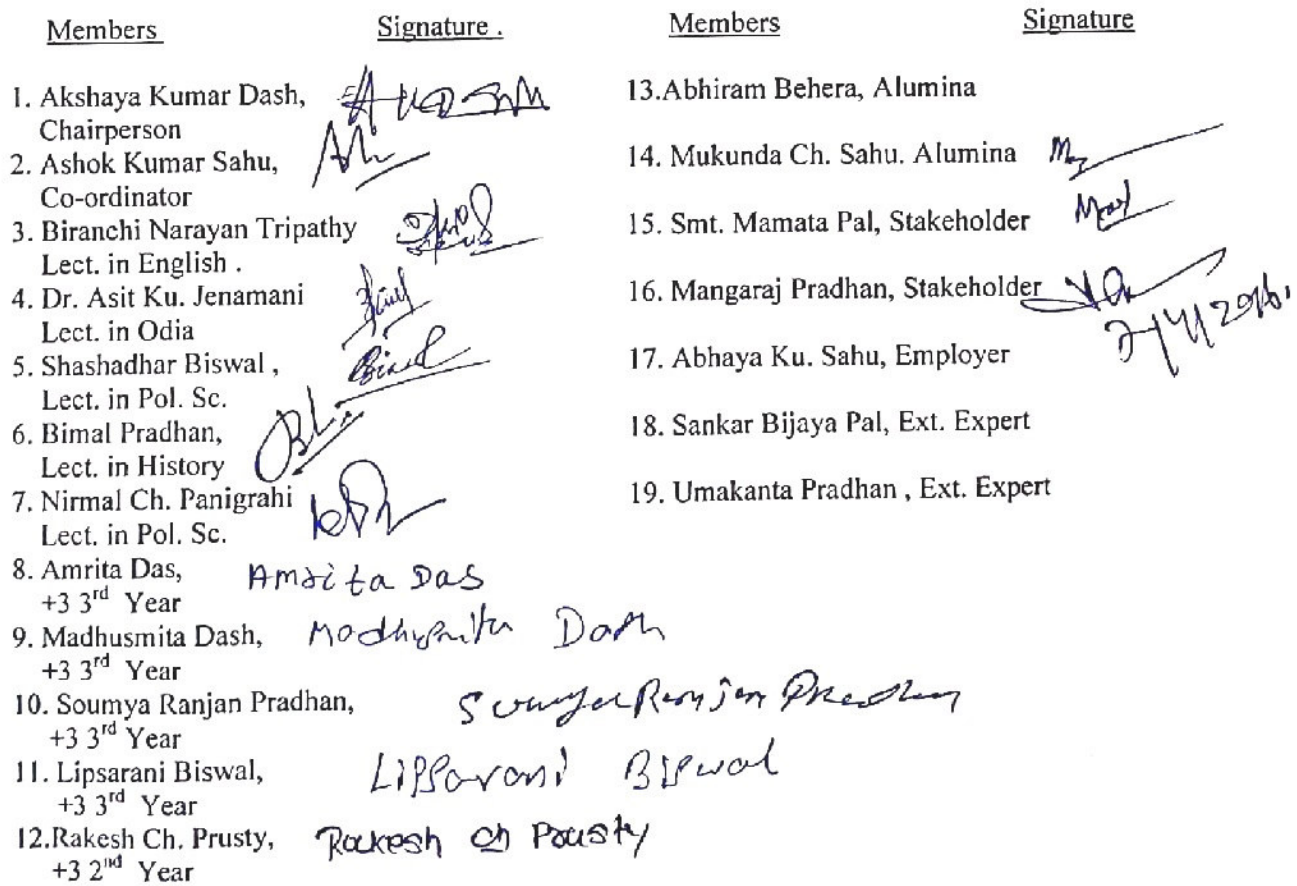 Members Signature . Members Signature
1. Akshaya Kumar Dash,
Chairperson
2. Ashok Kumar Sahu,
Co-ordinator
3. Biranchi Narayan Tripathy
Lect. in English .
4. Dr. Asit Ku. Jenamani
Lect. in Odia
5. Shashadhar Biswal ,
Lect. in Pol. Sc.
6. Bimal Pradhan,
Lect. in History
7. Nirmal Ch. Panigrahi
Lect. in Pol. Sc.
8. Amrita Das, Amrita Das
+3 3rd Year
9. Madhusmita Dash, Madhusmita Dash
+3 3rd Year
10. Soumya Ranjan Pradhan, Soumya Ranjan Pradhan
+3 3rd Year
11. Lipsarani Biswal, Lipsarani Biswal
+3 3rd Year
12.Rakesh Ch. Prusty, Rakesh Ch Prusty
+3 2nd Year
13.Abhiram Behera, Alumina
14. Mukunda Ch. Sahu. Alumina
15. Smt. Mamata Pal, Stakeholder
16. Mangaraj Pradhan, Stakeholder
17. Abhaya Ku. Sahu, Employer
18. Sankar Bijaya Pal, Ext. Expert
19. Umakanta Pradhan , Ext. Expert